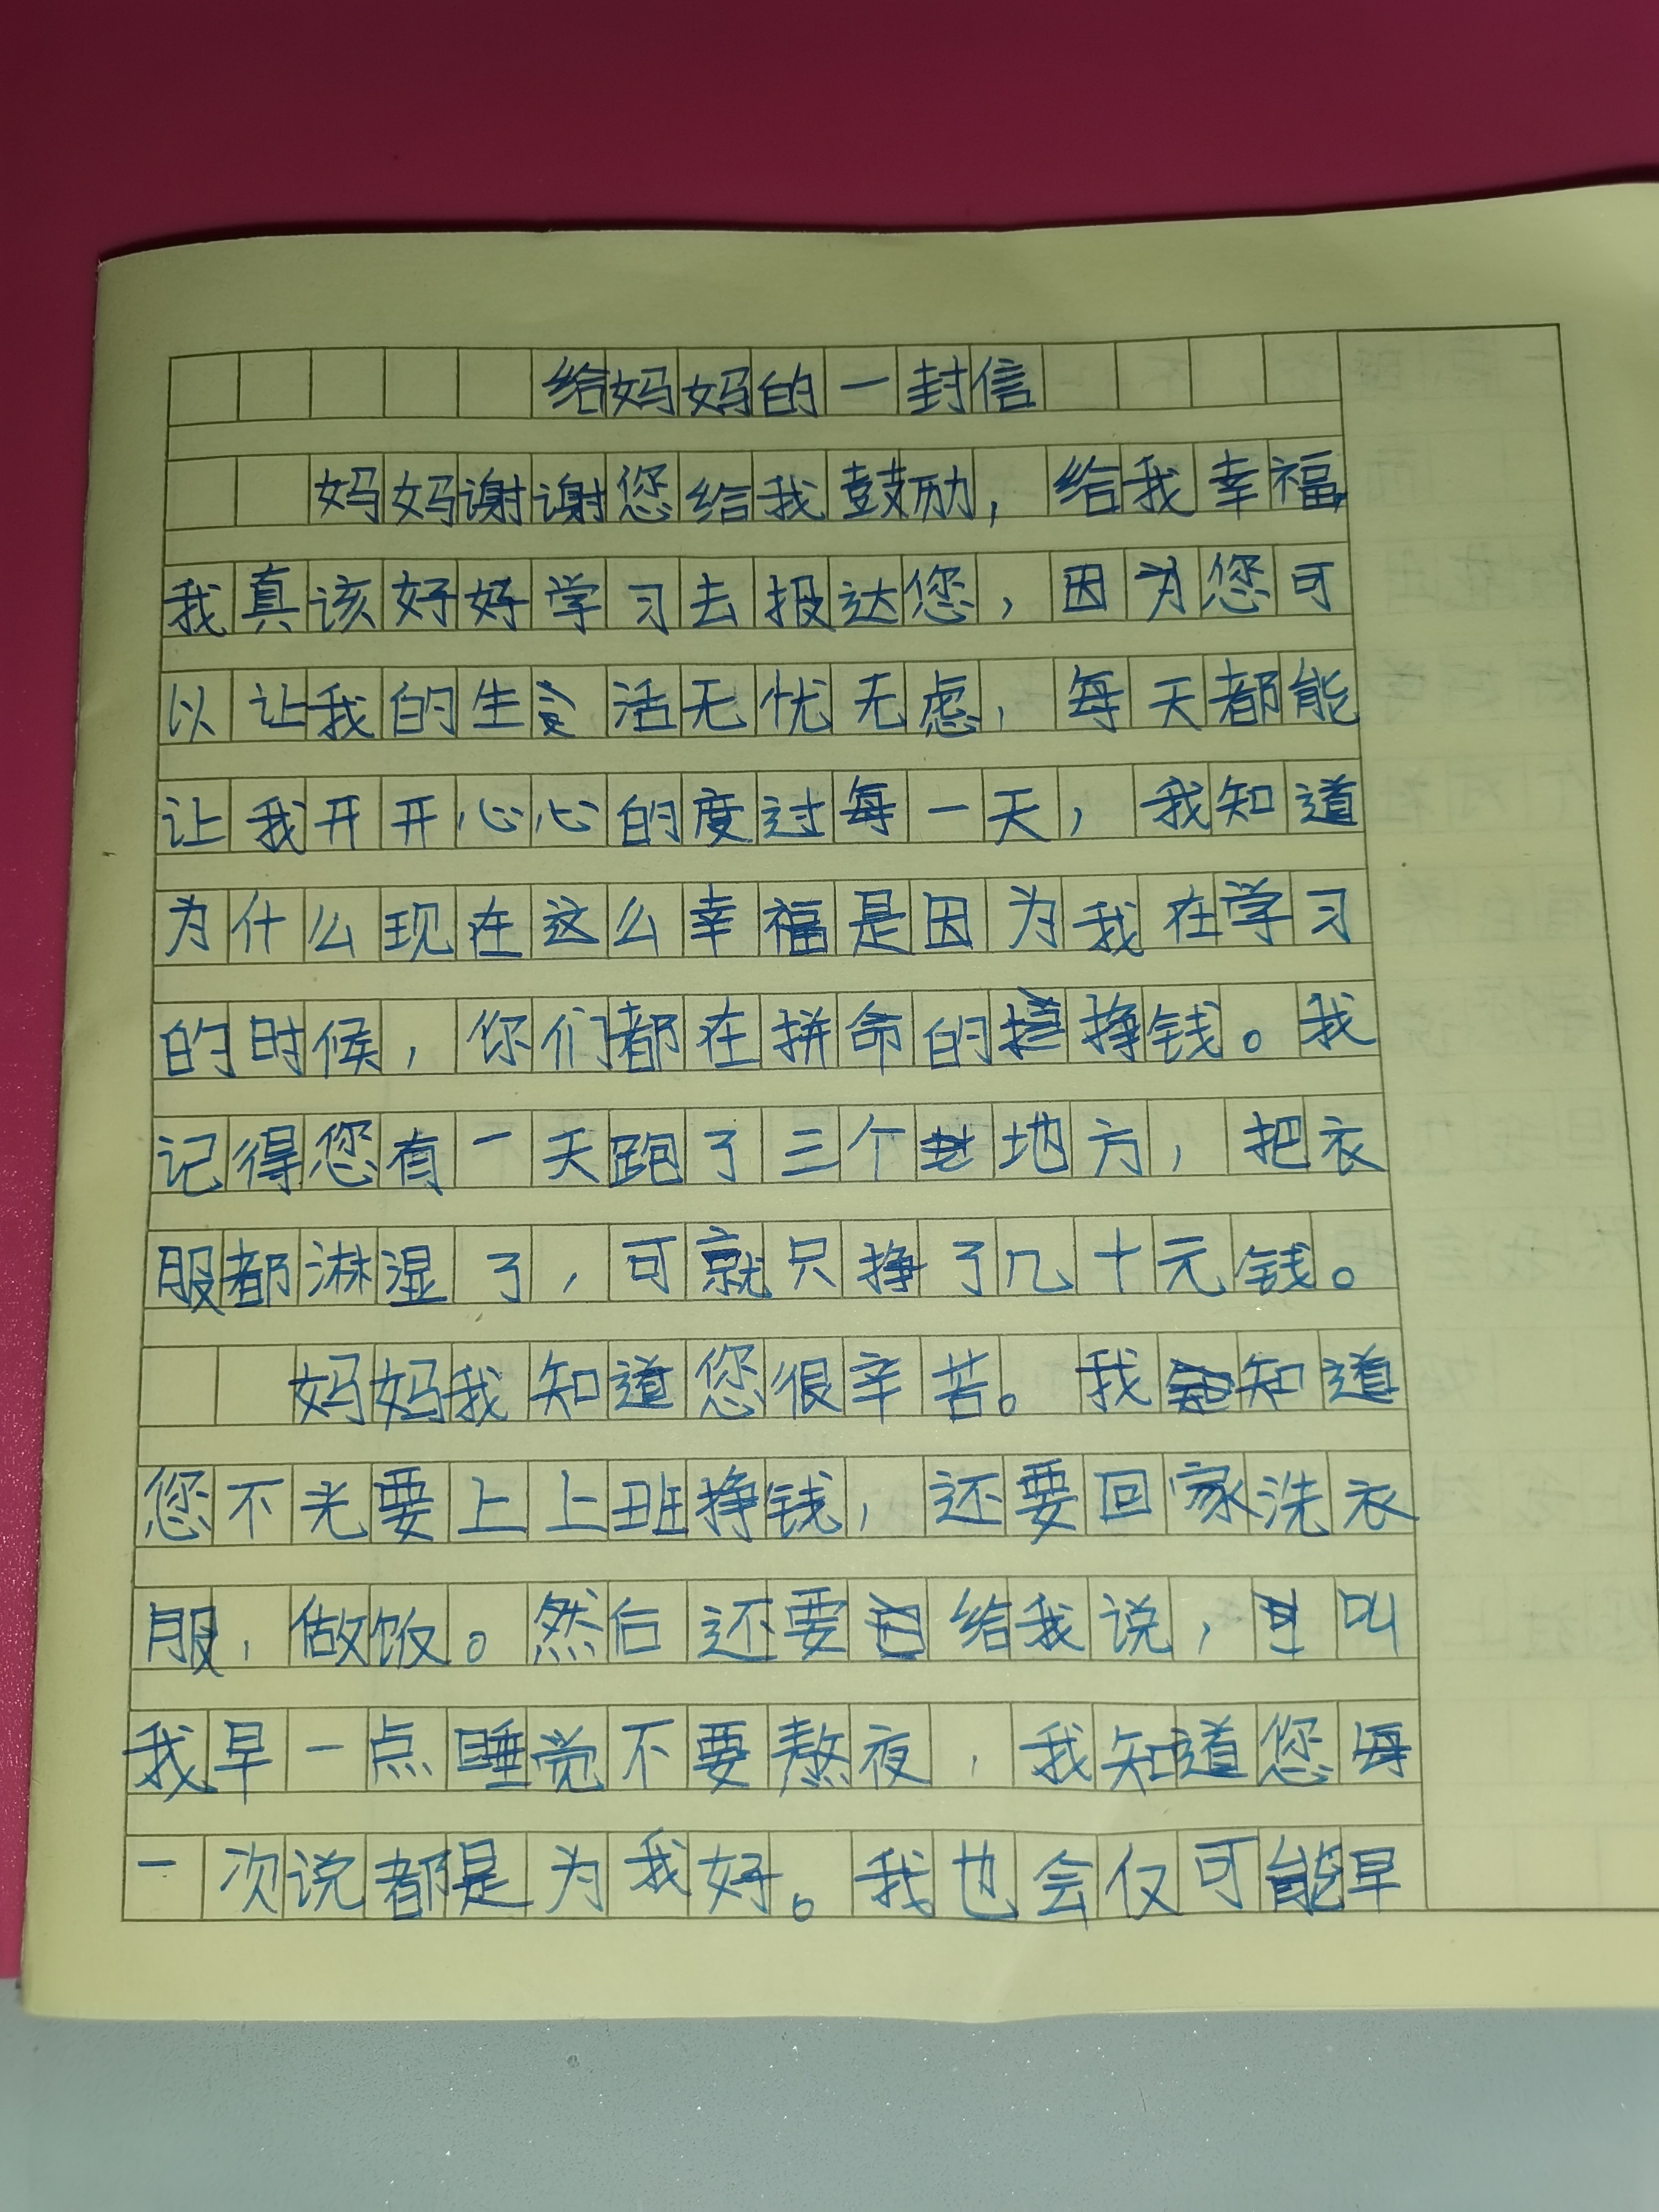 给妈妈的一封信
妈妈谢谢您给我鼓励，给我幸福，
我真该好好学习去报达您，因为您可
以让我的生活无忧无虑，每天都能
让我开开心心的度过每一天，我知道
为什么现在这么幸福是因为我在学习
的时候，你们都在拼命的挣钱。我
记得您有一天跑了三个地方，把衣
服都淋湿了，可就只挣了几十元钱。
妈妈我知道您很辛苦。我知道
您不光要上上班挣钱，还要回家洗衣
服，做饭。然后还要给我说，叫
我早一点睡觉不要熬夜，我知道您每
一次说都是为我好。我也会仅可能早